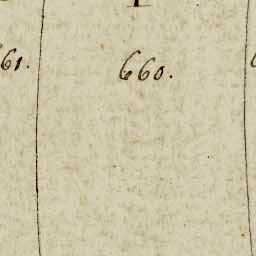 61. 660.